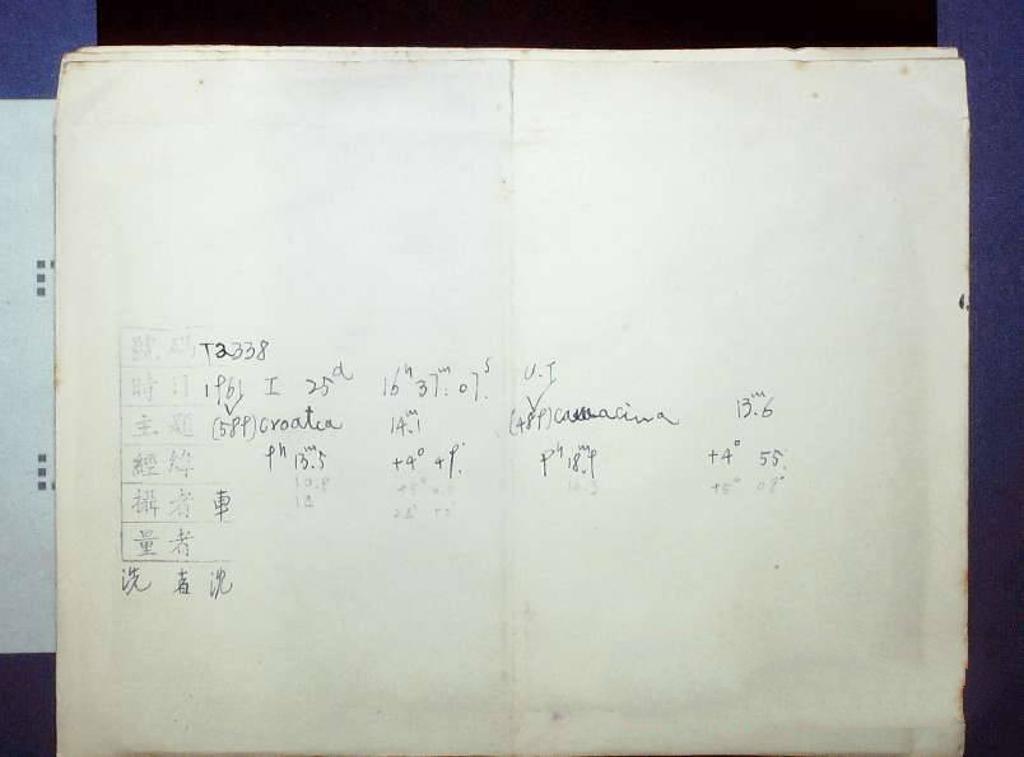 號碼 T2338
時日 1961 I 25ᵈ 16ʰ 37ᵐ. 07ˢ. U.T
主題 (589) croatia 14ᵐ.1 (489) comacina 13ᵐ.6
經緯 9ʰ 13ᵐ.5 +4° 49'. 9ʰ 18ᵐ.9 +4° 55'.
+5° 09'
攝者 車
量者
洗者 沈